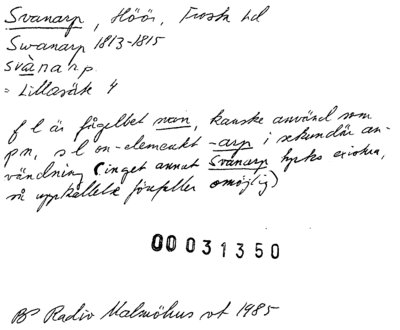 Svanarp, Höör, Frosta hd
Swanarp 1813-1815
svànarp
= Lillasäte 4
f l är fågelbet svan, kanske använd som
pn, s l on-elementet -arp i sekundär an-
vändning (inget annat Svanarp tycks existera,
så uppkallelse förefaller omöjlig)
00031350
BP Radio Malmöhus vt 1985